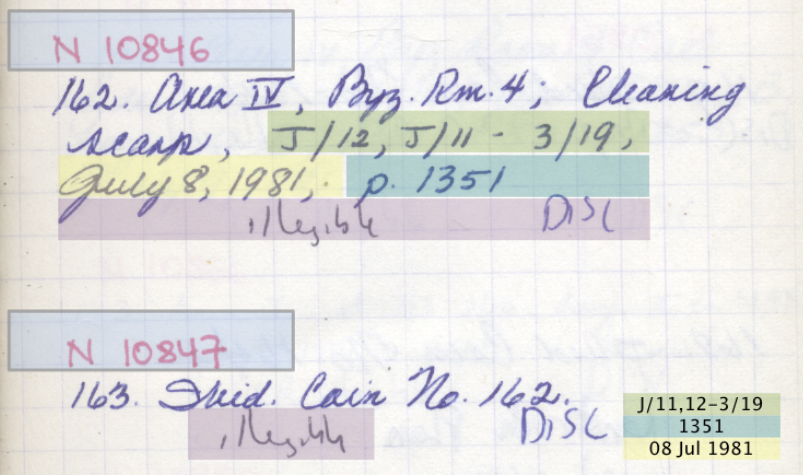 N 10846
162. Area IV, Byz. Rm. 4; Cleaning
scarp, J/12, J/11 - 3/19,
July 8, 1981, p. 1351
illegible DISC
N 10847
163. Ibid. Coin No. 162.
illegible DISC
J/11,12-3/19
1351
08 Jul 1981